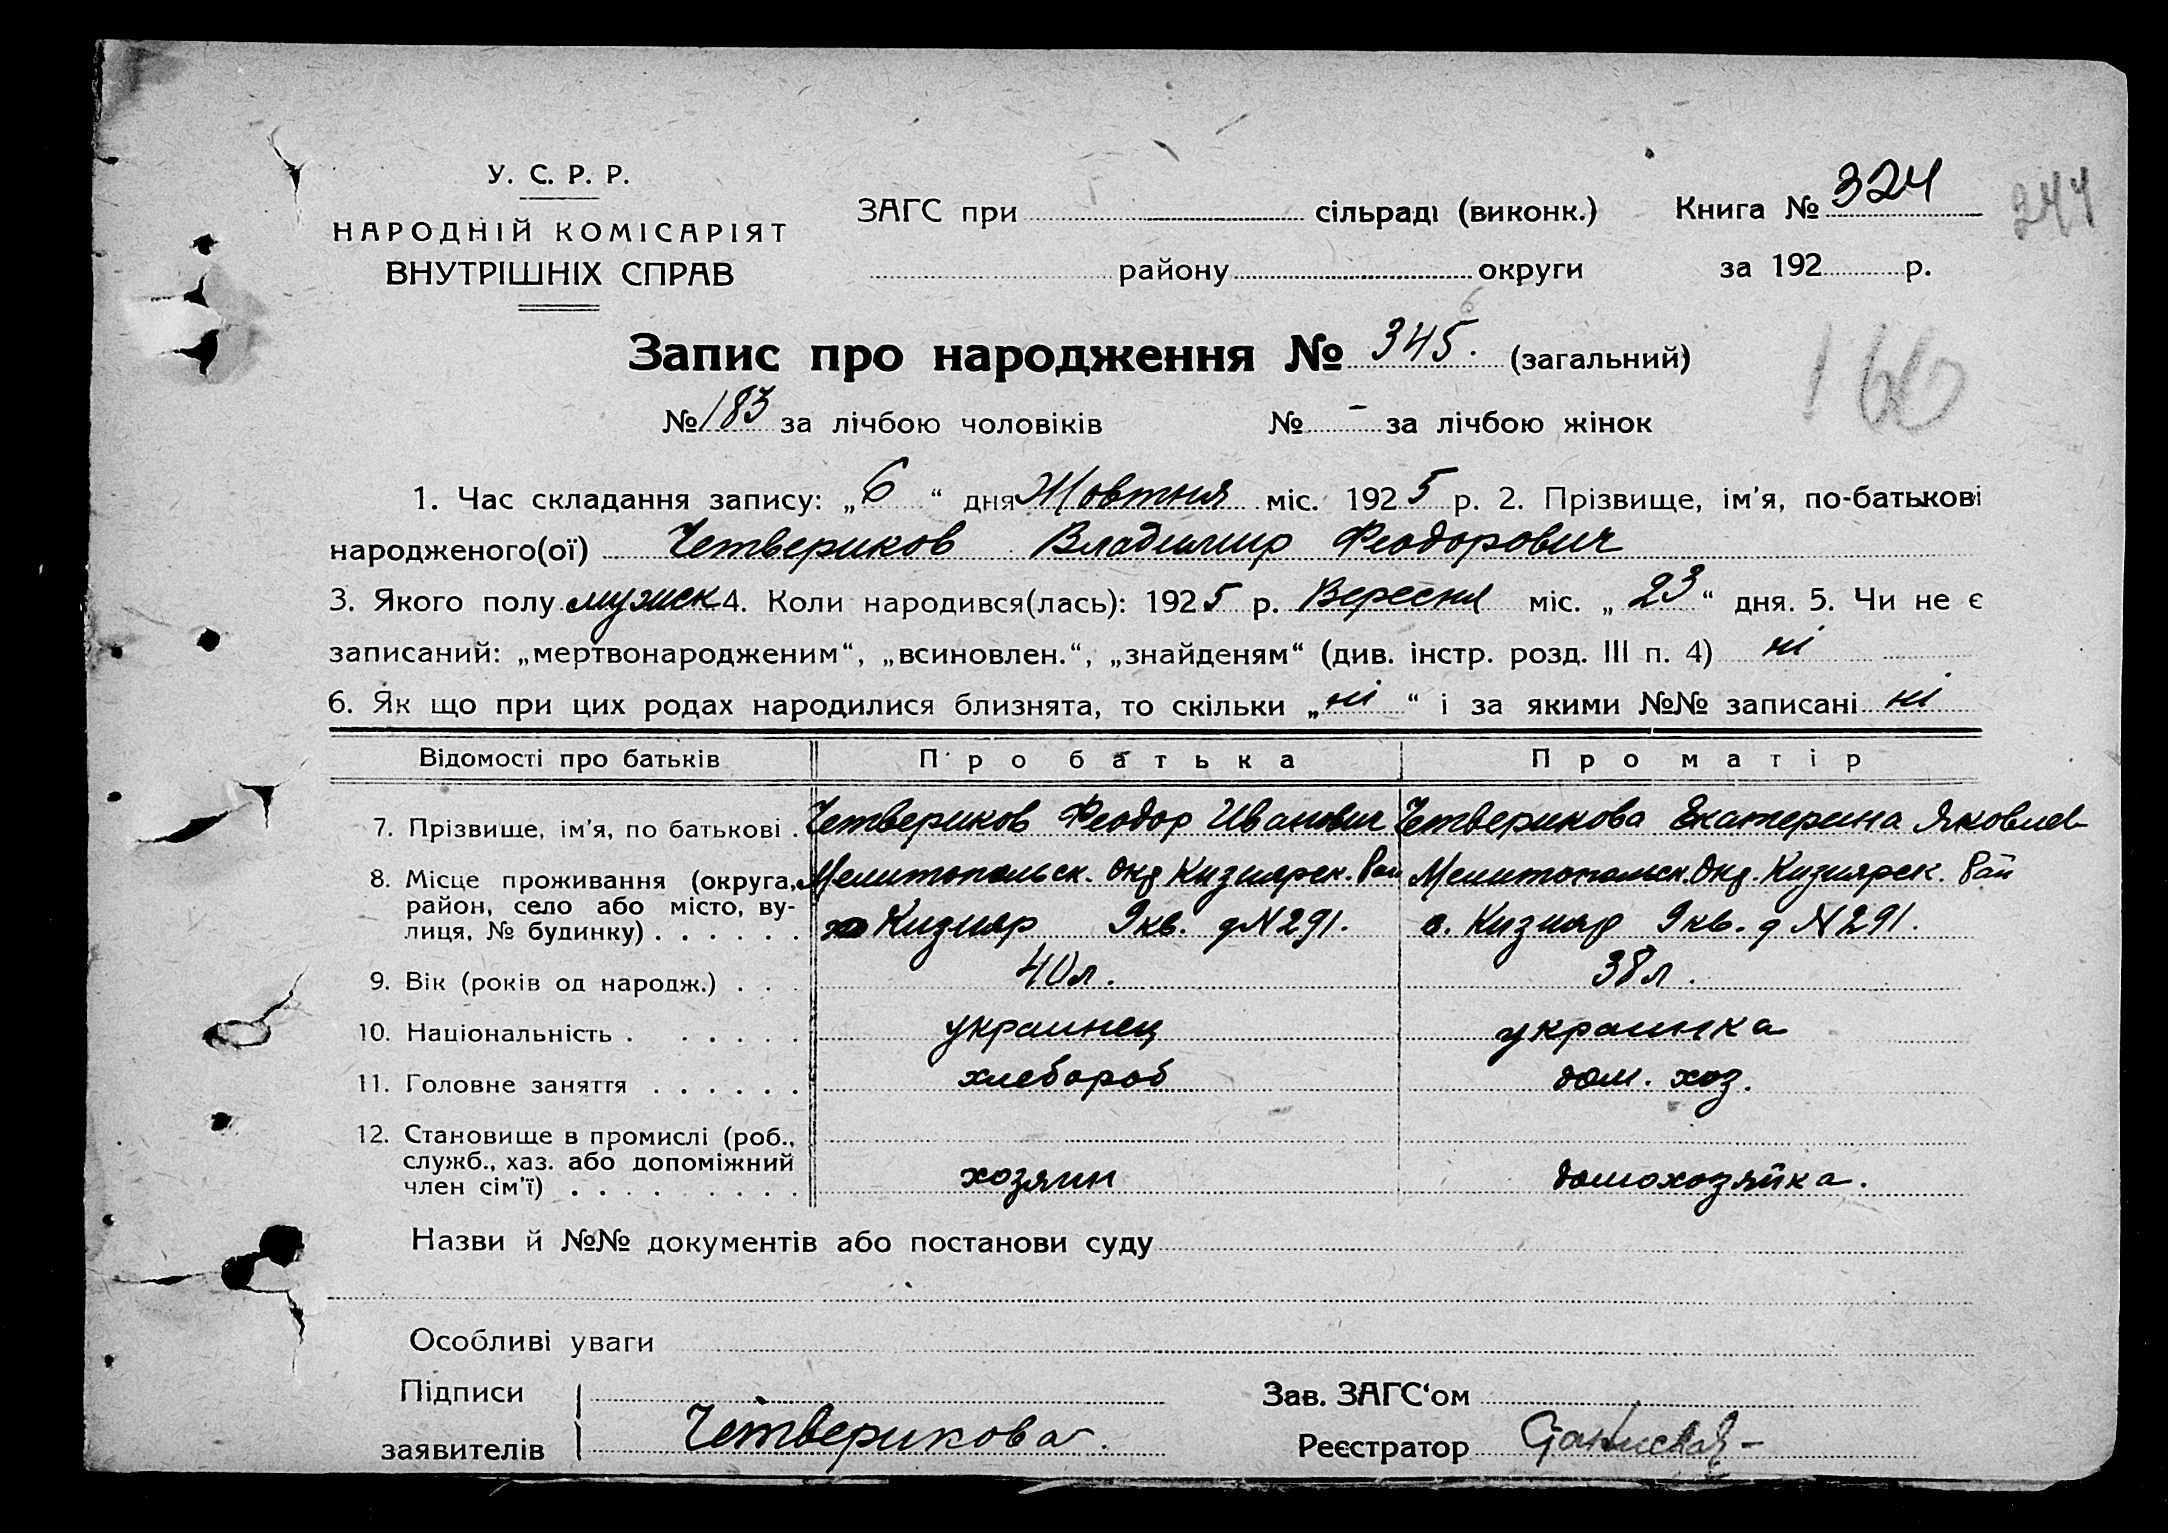 У. С. Р. Р.
НАРОДНІЙ КОМІСАРІЯТ
ВНУТРІШНІХ СПРАВ
ЗАГС при сільраді (виконк.)
району округи
Книга № 324
за 192 р.
244
Запис про народження № 345. (загальний)
6
166
№ 183 за лічбою чоловіків № - за лічбою жінок
1. Час складання запису: „6“ дня Жовтня міс. 1925 р. 2. Прізвище, ім'я, по-батькові
народженого(ої) Четвериков Владимир Феодорович
3. Якого полу мужск 4. Коли народився(лась): 1925 р. Вересня міс. „23“ дня. 5. Чи не є
записаний: „мертвонародженим“, „всиновлен.“, „знайденям“ (див. інстр. розд. III п. 4) ні
6. Як що при цих родах народилися близнята, то скільки „ні“ і за якими №№ записані ні
Відомості про батьків Про батька Про матір
7. Прізвище, ім'я, по батькові . Четвериков Феодор Иванович Четверикова Екатерина Яковлев
8. Місце проживання (округа, район, село або місто, вулиця, № будинку) . . . . . .
Мелитопольск. Окр Кизиярск. Рай
Кизияр 9 кв. д N 291.
Мелитопольск. Окр. Кизиярск. Рай
с. Кизияр 9 кв. д N 291.
9. Вік (років од народж.) . . . 40 л. 38 л.
10. Національність . . . . . . украинец украинка
11. Головне заняття . . . . . . хлебороб дом. хоз.
12. Становище в промислі (роб.,
служб., хаз. або допоміжний
член сім'ї) . . . . . . . . . хозяин домохозяйка.
Назви й №№ документів або постанови суду
Особливі уваги
Підписи
заявителів Четверикова.
Зав. ЗАГС‘ом
Реєстратор